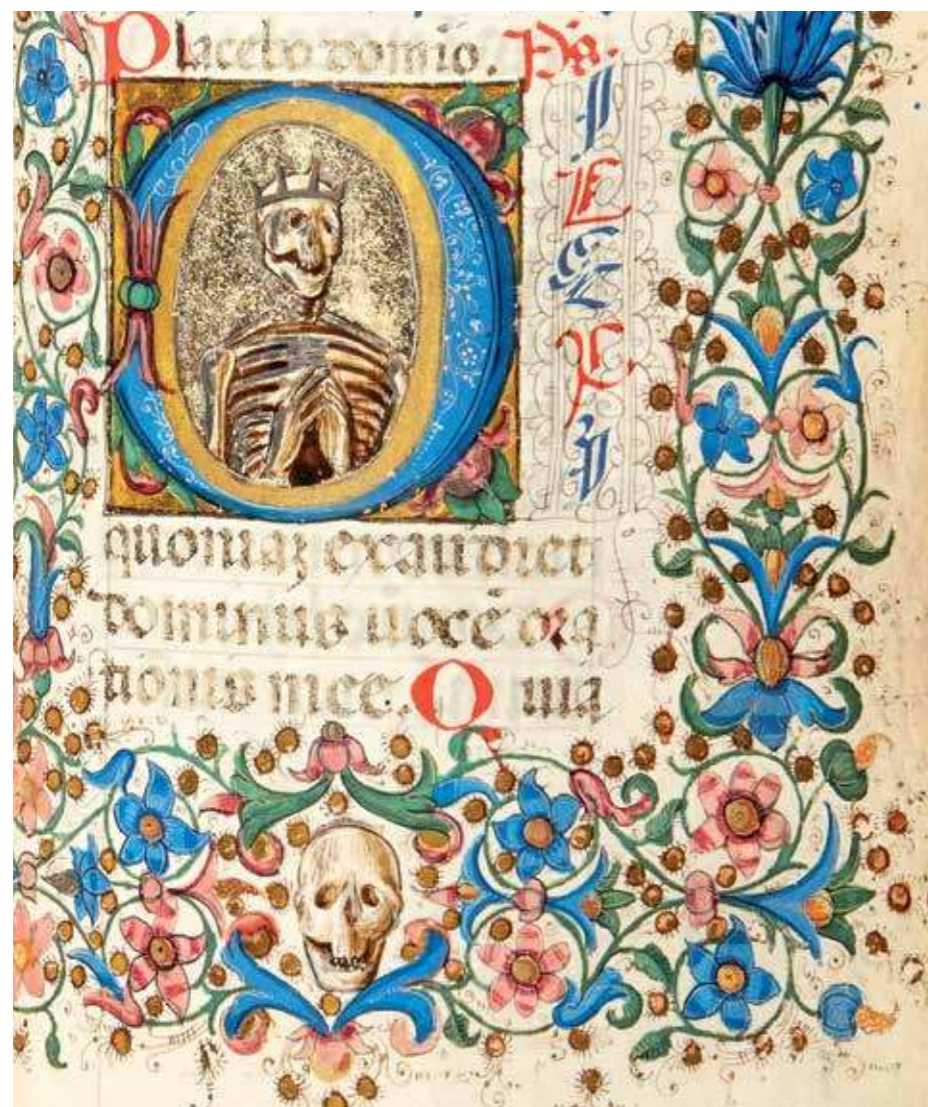 Placebo domīo. Ps.
DILEXI
quoniaʒ exaudiet
dominus uocē ora
tionis mee. Quia